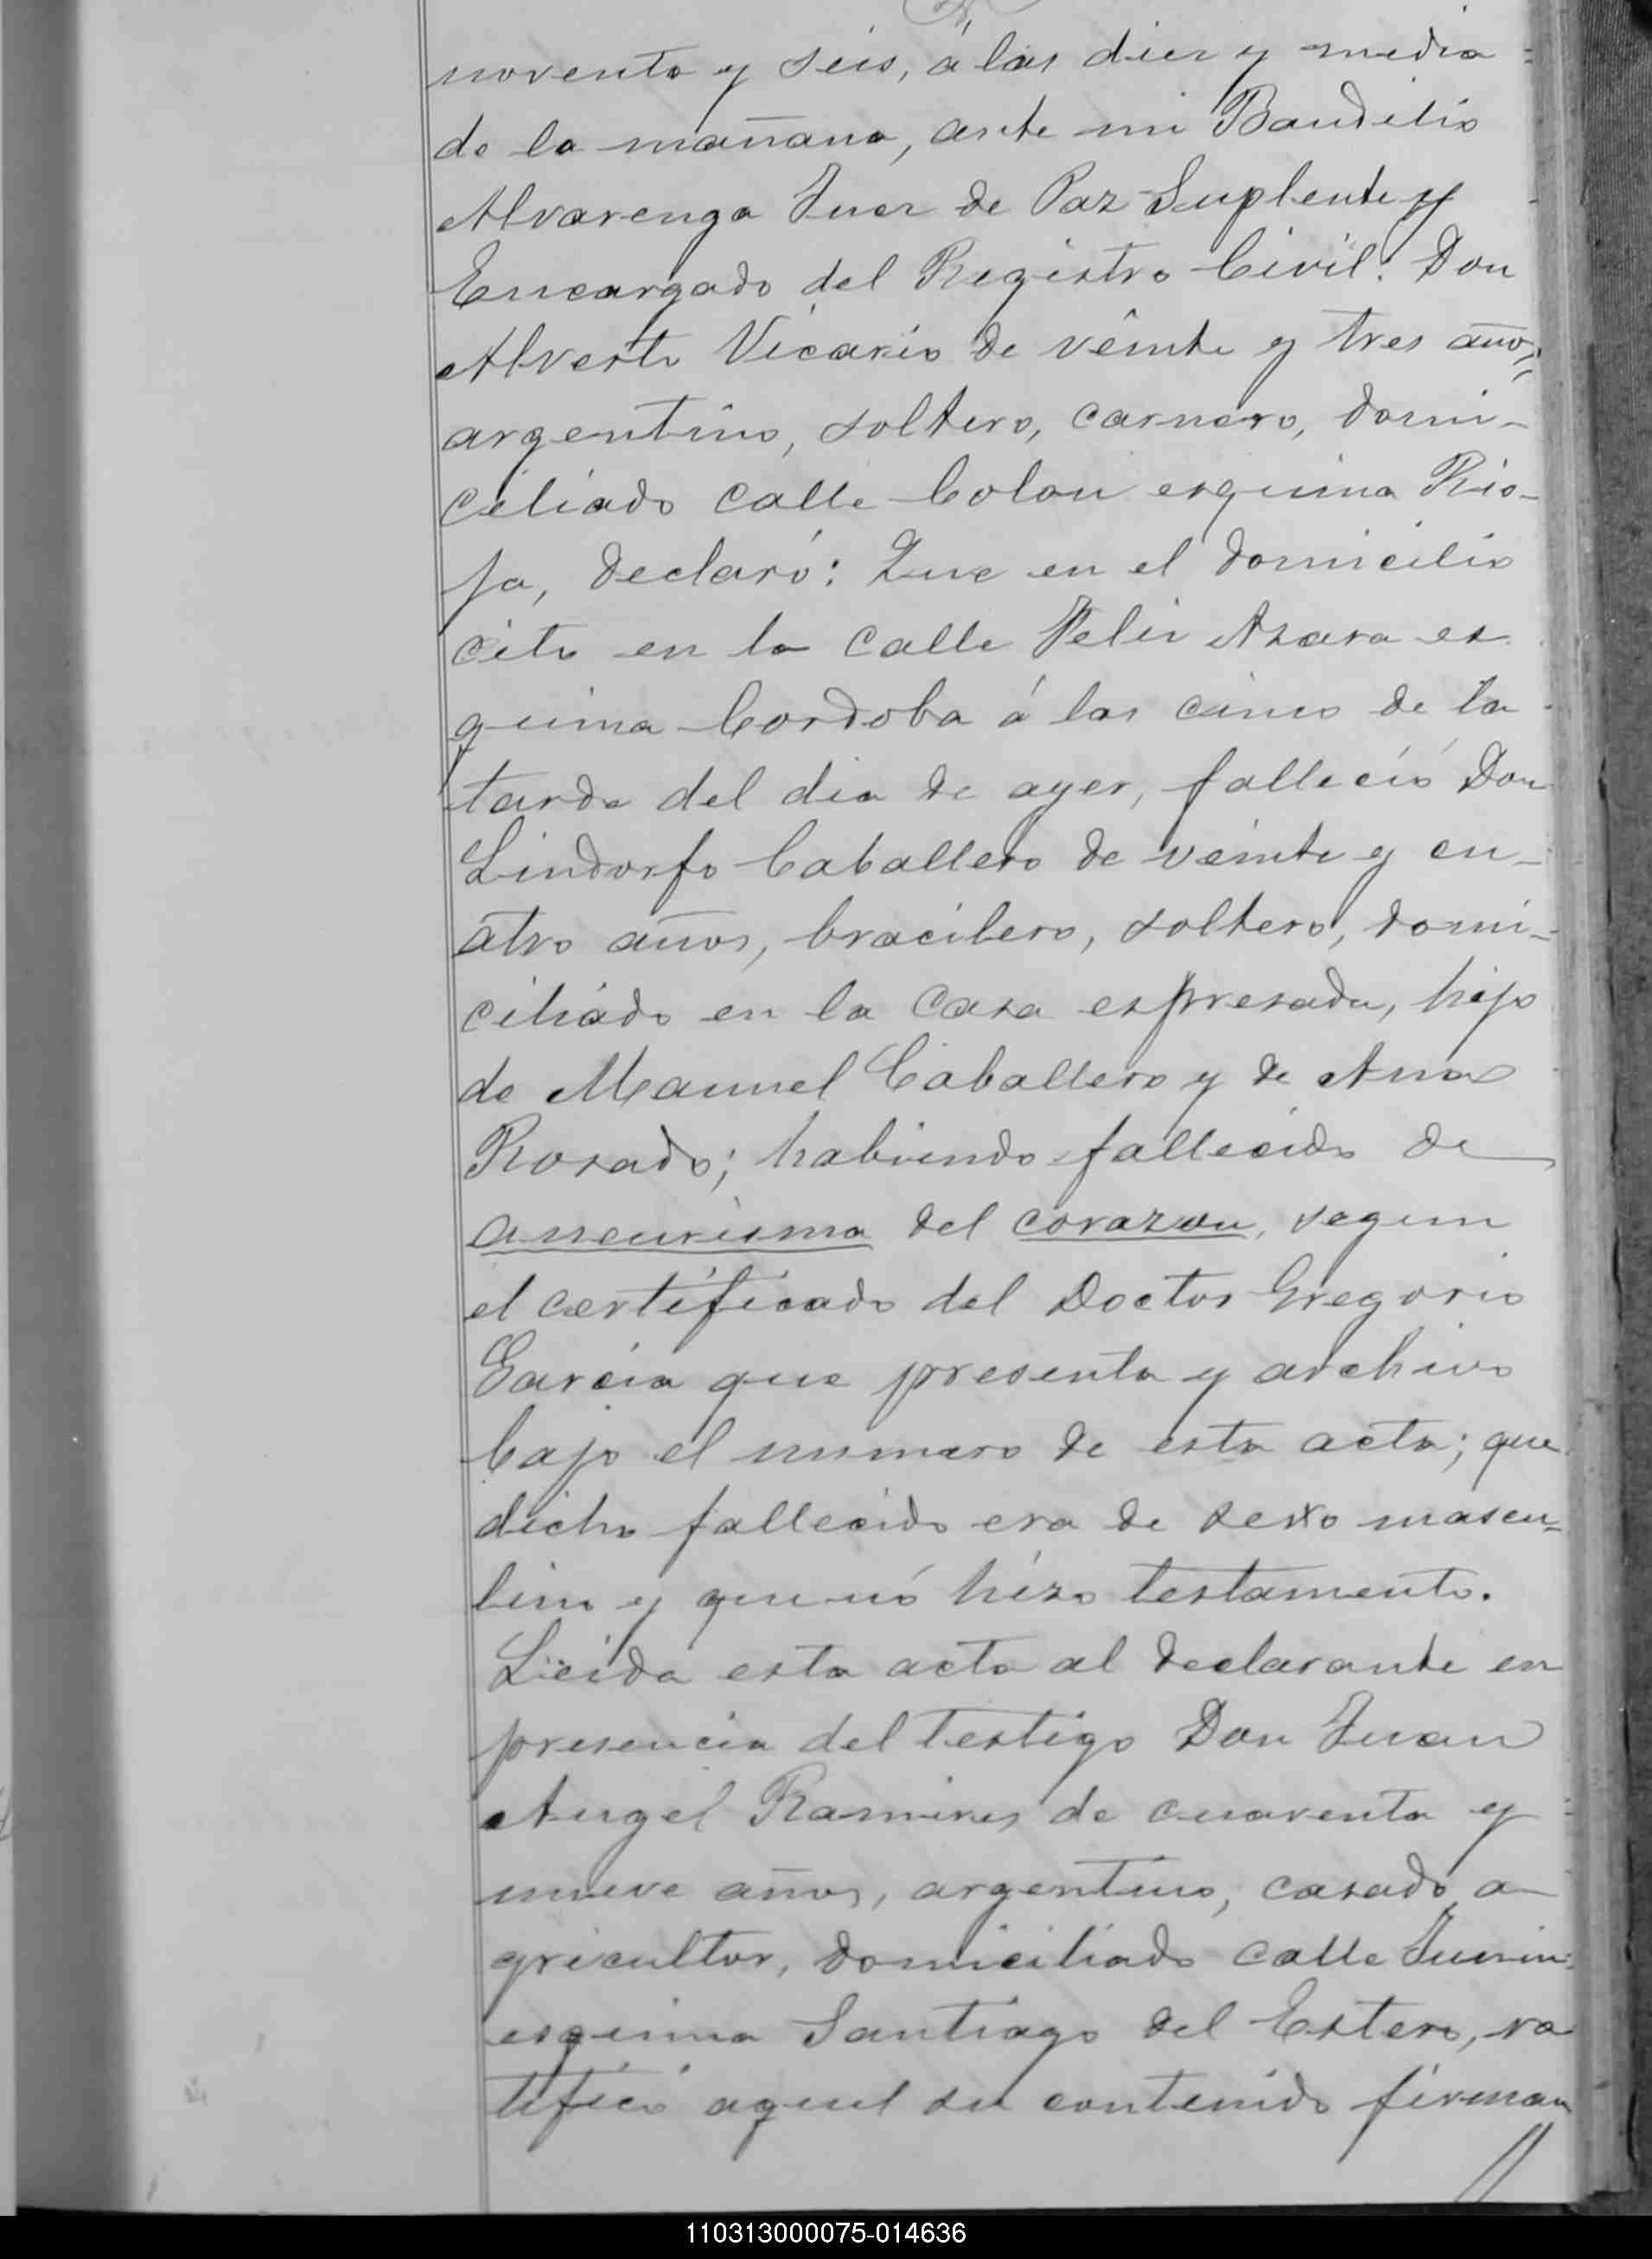 noventa y seis, á las diez y media
de la mañana, ante mi Baudilio
Alvarenga Juez de Paz Suplente y
Encargado del Registro Civil: Don
Alverto Vicario de veinte y tres años,
argentino, soltero, carnero, domi-
ciliado calle Colon esquina Rio-
ja, declaró: Que en el domicilio
cito en la calle Felix Azara es
quina Cordoba á las cinco de la
tarde del dia de ayer, falleció Don
Lindorfo Caballero de veinte y cu-
atro años, bracilero, soltero, domi-
ciliado en la casa espresada, hijo
de Manuel Caballero y de Ana
Rosado; habiendo fallecido de
aneurisma del corazon, segun
el certificado del Doctor Gregorio
Garcia que presenta y archivo
bajo el numero de esta acta; que
dicho fallecido era de sexo mascu-
lino y que nó hizo testamento.
Leida esta acta al declarante en
presencia del testigo Don Juan
Angel Ramires de cuarenta y
nueve años, argentino, casado, a-
gricultor, domiciliado calle Junin
esquina Santiago del Estero, ra
tificó aquel su contenido firman
110313000075-014636